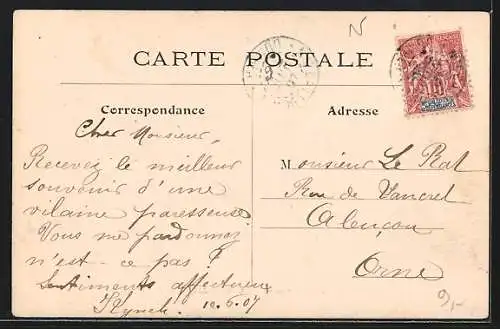 N
CARTE POSTALE
Correspondance
Adresse
Cher Monsieur,
Recevez le meilleur
souvenir d'une
vilaine paresseuse.
Vous me pardonnez
n'est-ce pas ?
Sentiments affectueux
10.6.07
Monsieur Le Rat
Rue de
Alençon
Orne
9,-